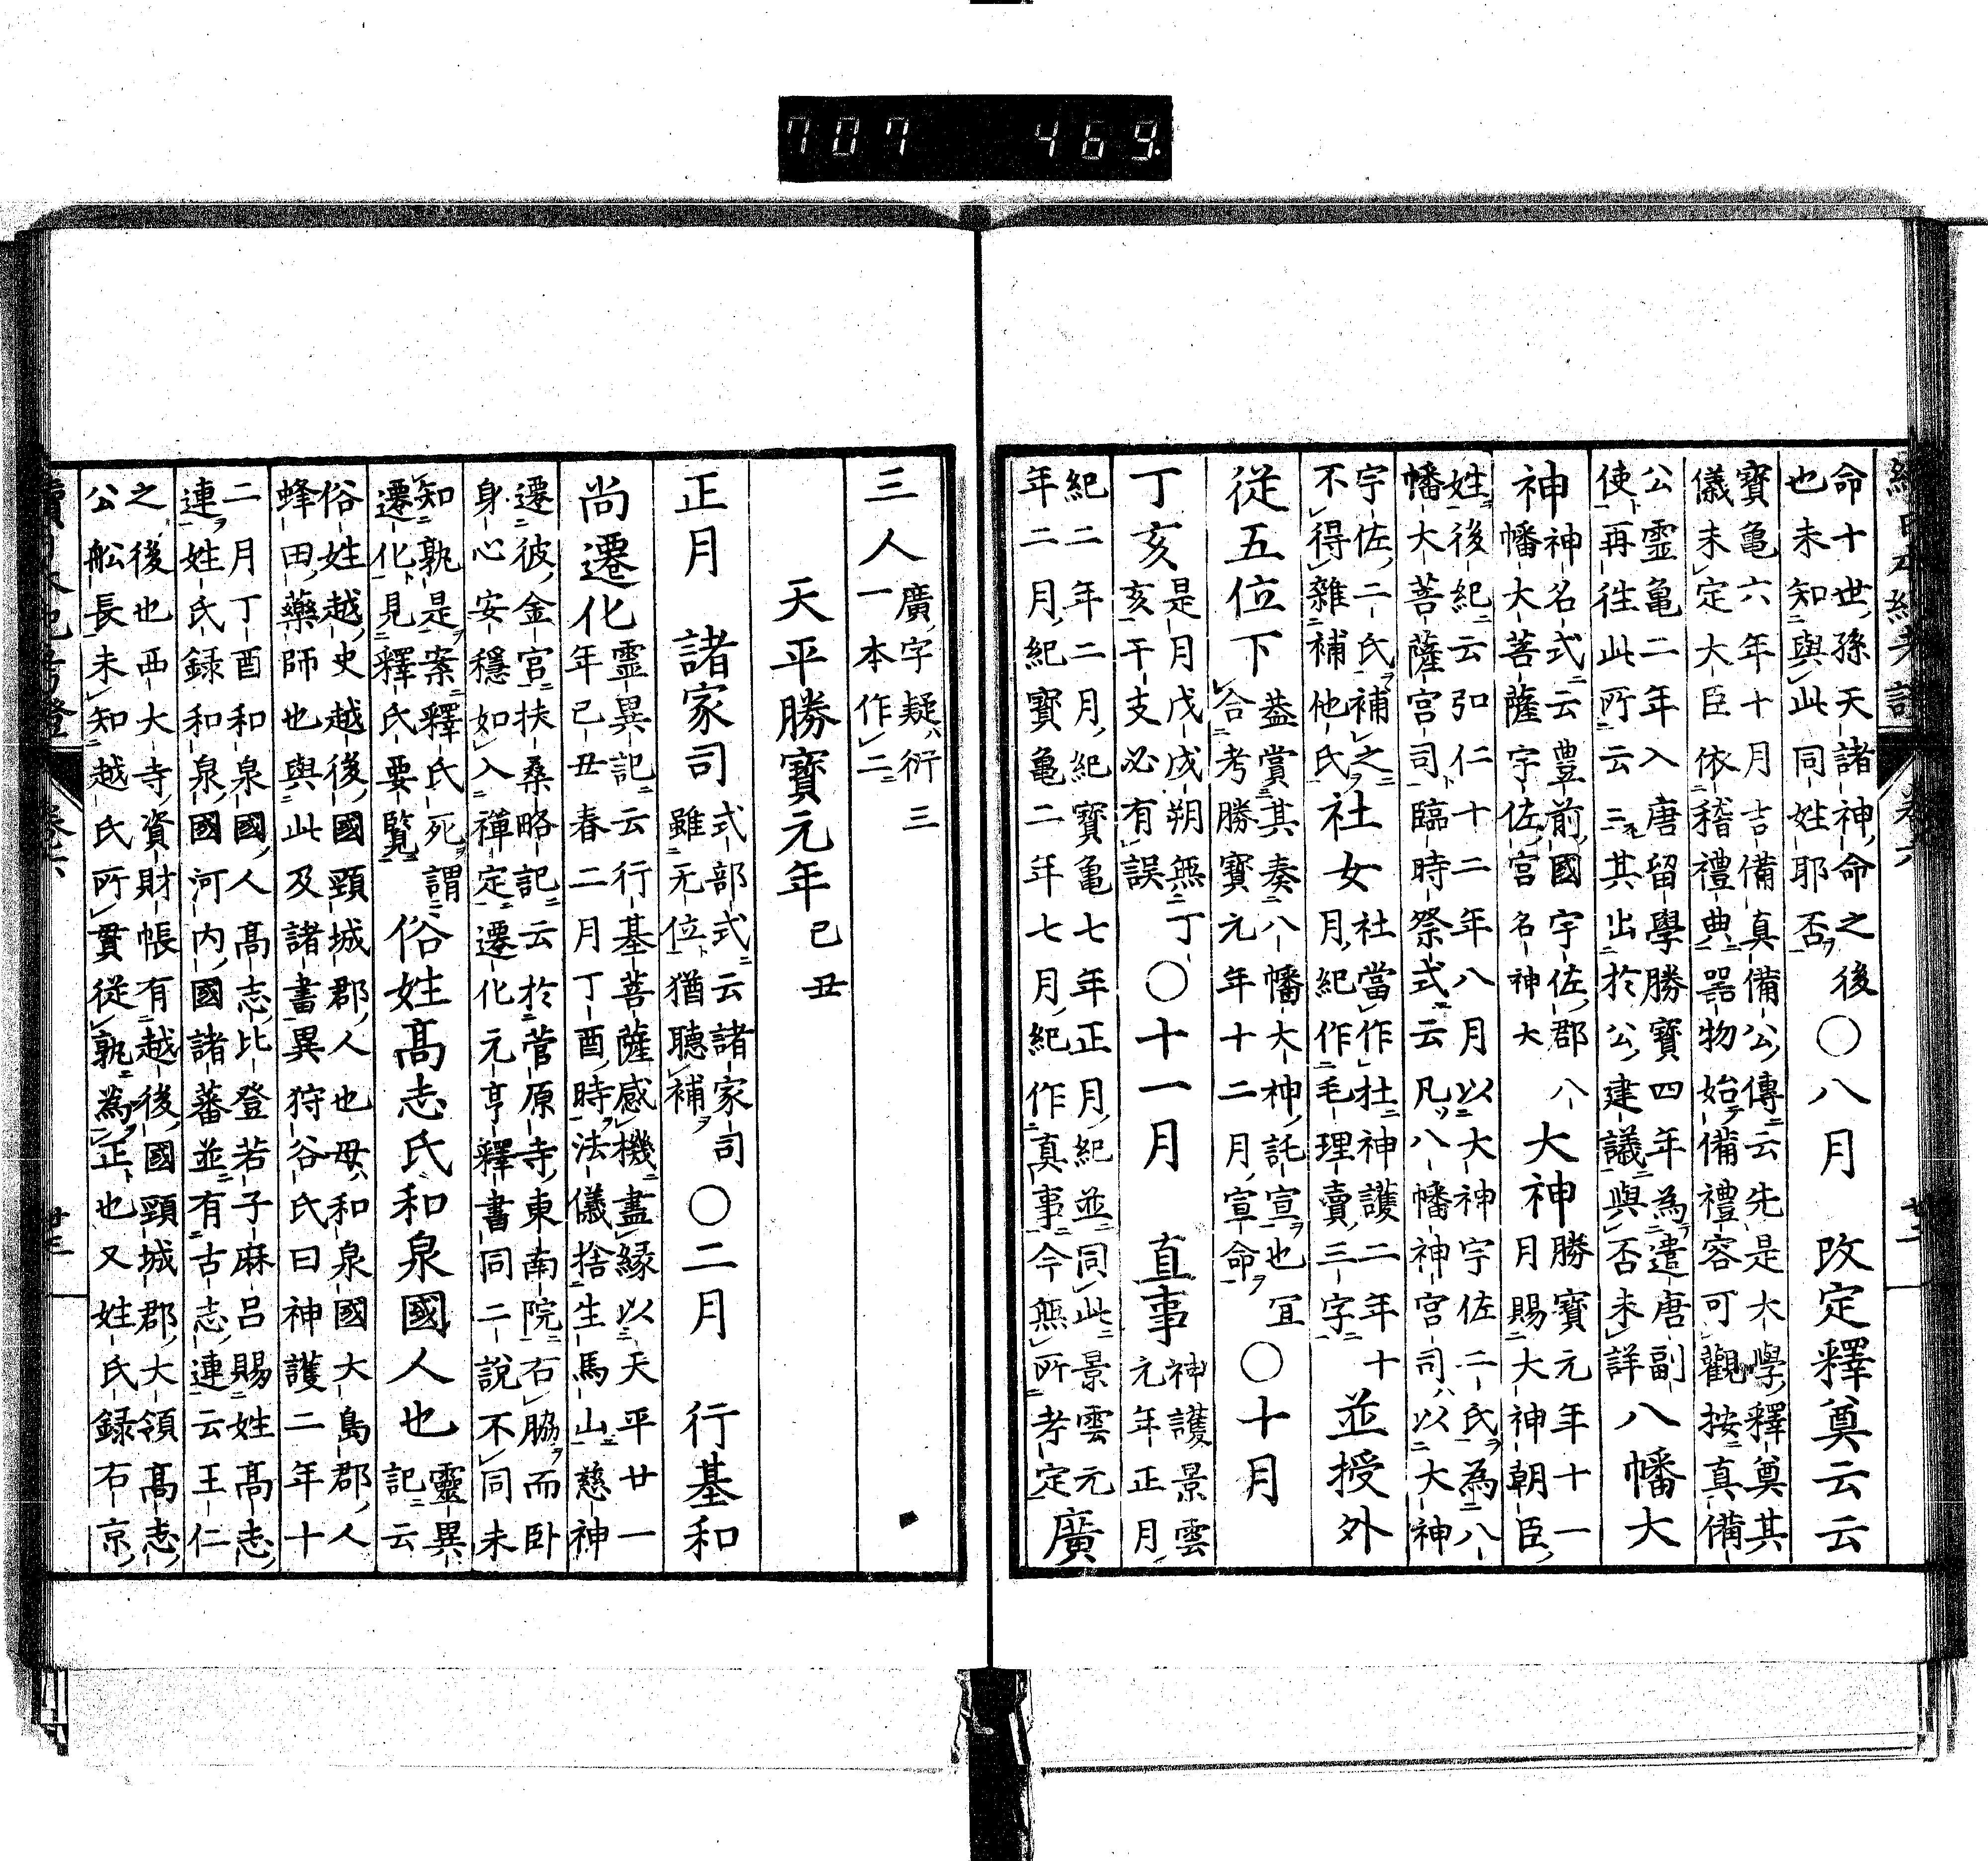 707 469
命十世孫天諸神命之後
也未知與此同姓耶否
〇八月 改定釋奠云云
寶亀六年十月吉備真備公傳云先是大學釋奠其
儀未定大臣依稽禮典器物始備禮容可觀按真備
公靈亀二年入唐留學勝寶四年為遣唐副
使再往此所云三其出於公建議與否未詳
八幡大
神
神名式云豊前國宇佐郡八
幡大菩薩宇佐宮名神大
大神
勝寶元年十一
月賜大神朝臣
姓後紀云弘仁十二年八月以大神宇佐二氏為八
幡大菩薩宮司臨時祭式云凡八幡神宮司以大神
宇佐二氏補之
不得雜補他氏
社女
社當作杜神護二年十
月紀作毛理賣三字
並授外
從五位下
葢賞其奏八幡大神託宣也冝
合考勝寶元年十二月宣命
〇十月
丁亥
是月戊戌朔無丁
亥干支必有誤
〇十一月 直事
神護景雲
元年正月
紀二年二月紀寶亀七年正月紀並同此景雲元
年二月紀寶亀二年七月紀作真事今無所考定
廣
三人
廣字疑衍三
一本作二
天平勝寶元年 己丑
正月 諸家司
式部式云諸家司
雖无位猶聽補
〇二月 行基和
尚遷化
靈異記云行基菩薩感機盡緣以天平廿一
年己丑春二月丁酉時法儀捨生馬山慈神
遷彼金宮扶桑略記云於菅原寺東南院右脇而卧
身心安穩如入禪定遷化元亨釋書同二說不同未
知孰是案釋氏死謂
遷化見釋氏要覽
俗姓髙志氏和泉國人也
靈異
記云
俗姓越史越後國頸城郡人也母和泉國大島郡人
蜂田藥師也與此及諸書異狩谷氏曰神護二年十
二月丁酉和泉國人髙志比登若子麻呂賜姓髙志
連姓氏録和泉國河内國諸蕃並有古志連云王仁
之後也西大寺資財帳有越後國頸城郡大領髙志
公舩長未知越氏所貫從孰為正也又姓氏録右京